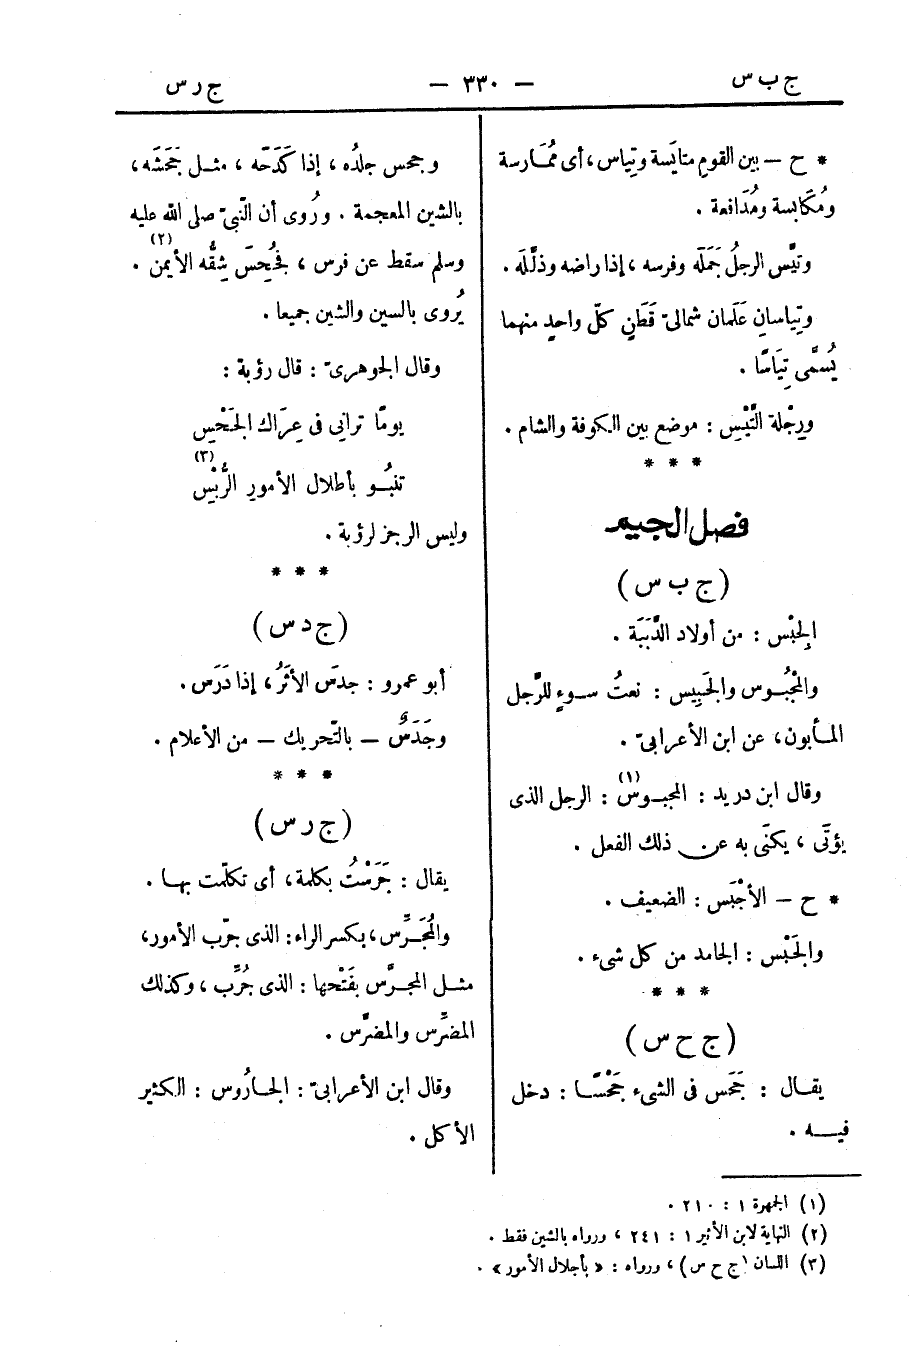 ج ب س
— ٣٣٠ —
ج ر س
* ح — بين القوم متايَسة وتِياس، أى مُمَارسة
ومُكَايسة ومُدَافعة .
وتَيَّس الرجلُ جَمَلَه وفرسه ، إذا راضه وذلَّلَه .
وتِياسانِ عَلَمان شمالىّ قَطَنٍ كلّ واحدٍ منهما
يُسَمَّى تِيَاسًا .
ورِجْلة التَّيْسِ : موضع بين الكوفة والشام .
* * *
فصل الجيم
( ج ب س )
الجِبْس : من أولاد الدَّبَبَة .
والمْجْبُوس والجَبِيس : نعتُ سوءٍ للرَّجل
المأبون، عن ابن الأعرابىّ .
وقال ابن دريد : المجبوس (١) : الرجل الذى
يؤتَى ، يكنَى به عن ذلك الفعل .
* ح — الأجْبَس : الضعيف .
والجَبْس : الجامد من كل شىء .
* * *
( ج ح س )
يقال : جَحَس فى الشىء جَحْسًا : دخل
فيه .
وجحس جلدُه ، إذا كَدَحَه ، مثل جَحَشَه ،
بالشين المعجمة . ورُوى أن النّبىّ صلى الله عليه
وسلم سقط عن فرس ، فجُحِسَ شِقُّه الأيمن (٢) .
يُروى بالسين والشين جميعا .
وقال الجوهرىّ : قال رؤبة :
يومًا ترانِى فى عِرَاك الجَحْسِ
تنبُو بأطلال الأمورِ الرُّبْسِ (٣)
وليس الرجز لرؤبة .
* * *
( ج د س )
أبو عمرو : جدَس الأثَرُ ، إذا دَرَس .
وجَدَسٌ — بالتّحريك — من الأعلام .
* * *
( ج ر س )
يقال : جَرَسْتُ بكلمة، أى تكلّمت بها .
والمُجَرِّس، بكسر الراء : الذى جرّب الأمور،
مثل المجرَّس بفَتْحها : الذى جُرِّب ، وكذلك
المضرِّس والمضرَّس .
وقال ابن الأعرابىّ : الجارُوس : الكثير
الأكل .
(١) الجمهرة ١ : ٢١٠ .
(٢) النهاية لابن الأثير ١ : ٢٤١ ، ورواه بالشين فقط .
(٣) اللسان (ج ح س) ، ورواه : « بأجلال الأمور » .